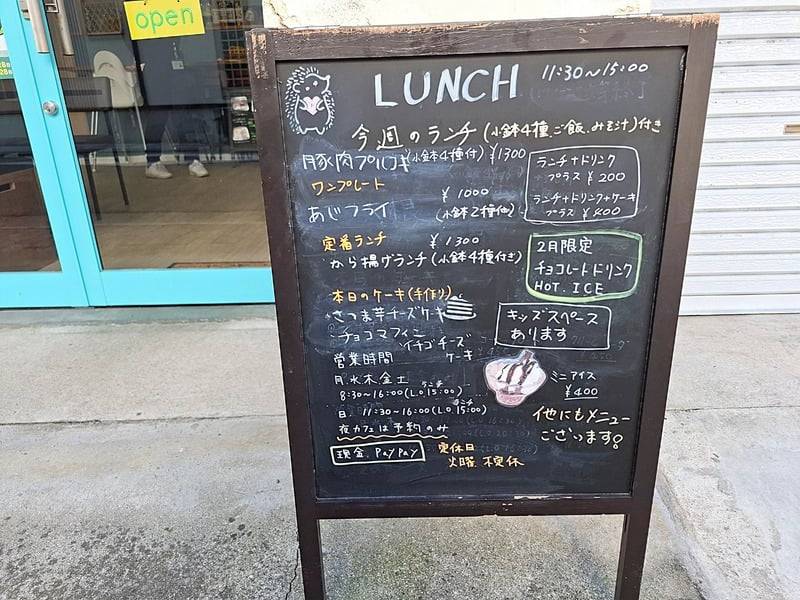 open
LUNCH 11:30～15:00
今週のランチ(小鉢4種、ご飯、みそ汁)付き
豚肉プルコギ(小鉢4種付)¥1300
ワンプレート ¥1000
あじフライ (小鉢2種他)
定番ランチ ¥1300
から揚げランチ(小鉢4種付き)
本日のケーキ(手作り)
・さつま芋チーズケーキ
・チョコマフィン
・イチゴチーズケーキ
営業時間
月.水木金土
8:30～16:00(L.O ランチ15:00)
日. 11:30～16:00(L.O ランチ15:00)
夜カフェは予約のみ
現金、PayPay
定休日
火曜、不定休
ランチ+ドリンク
プラス ¥200
ランチ+ドリンク+ケーキ
プラス ¥400
2月限定
チョコレートドリンク
HOT. ICE
キッズスペース
あります
ミニアイス
¥400
他にもメニュー
ございます!